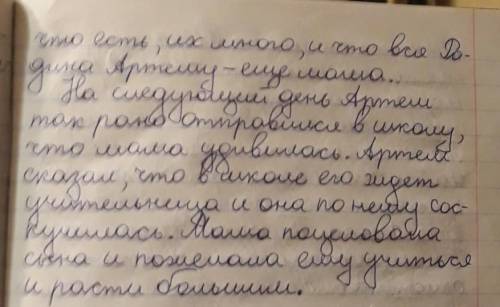 что есть, их много, и что вся Ро-
дина Артему – еще мама..
На следующий день Артем
так рано отправился в школу,
что мама удивилась. Артем
сказал, что в школе его ждет
учительница и она по нему сос-
кучилась. Мама поцеловала
сына и пожелала ему учиться
и расти большим.